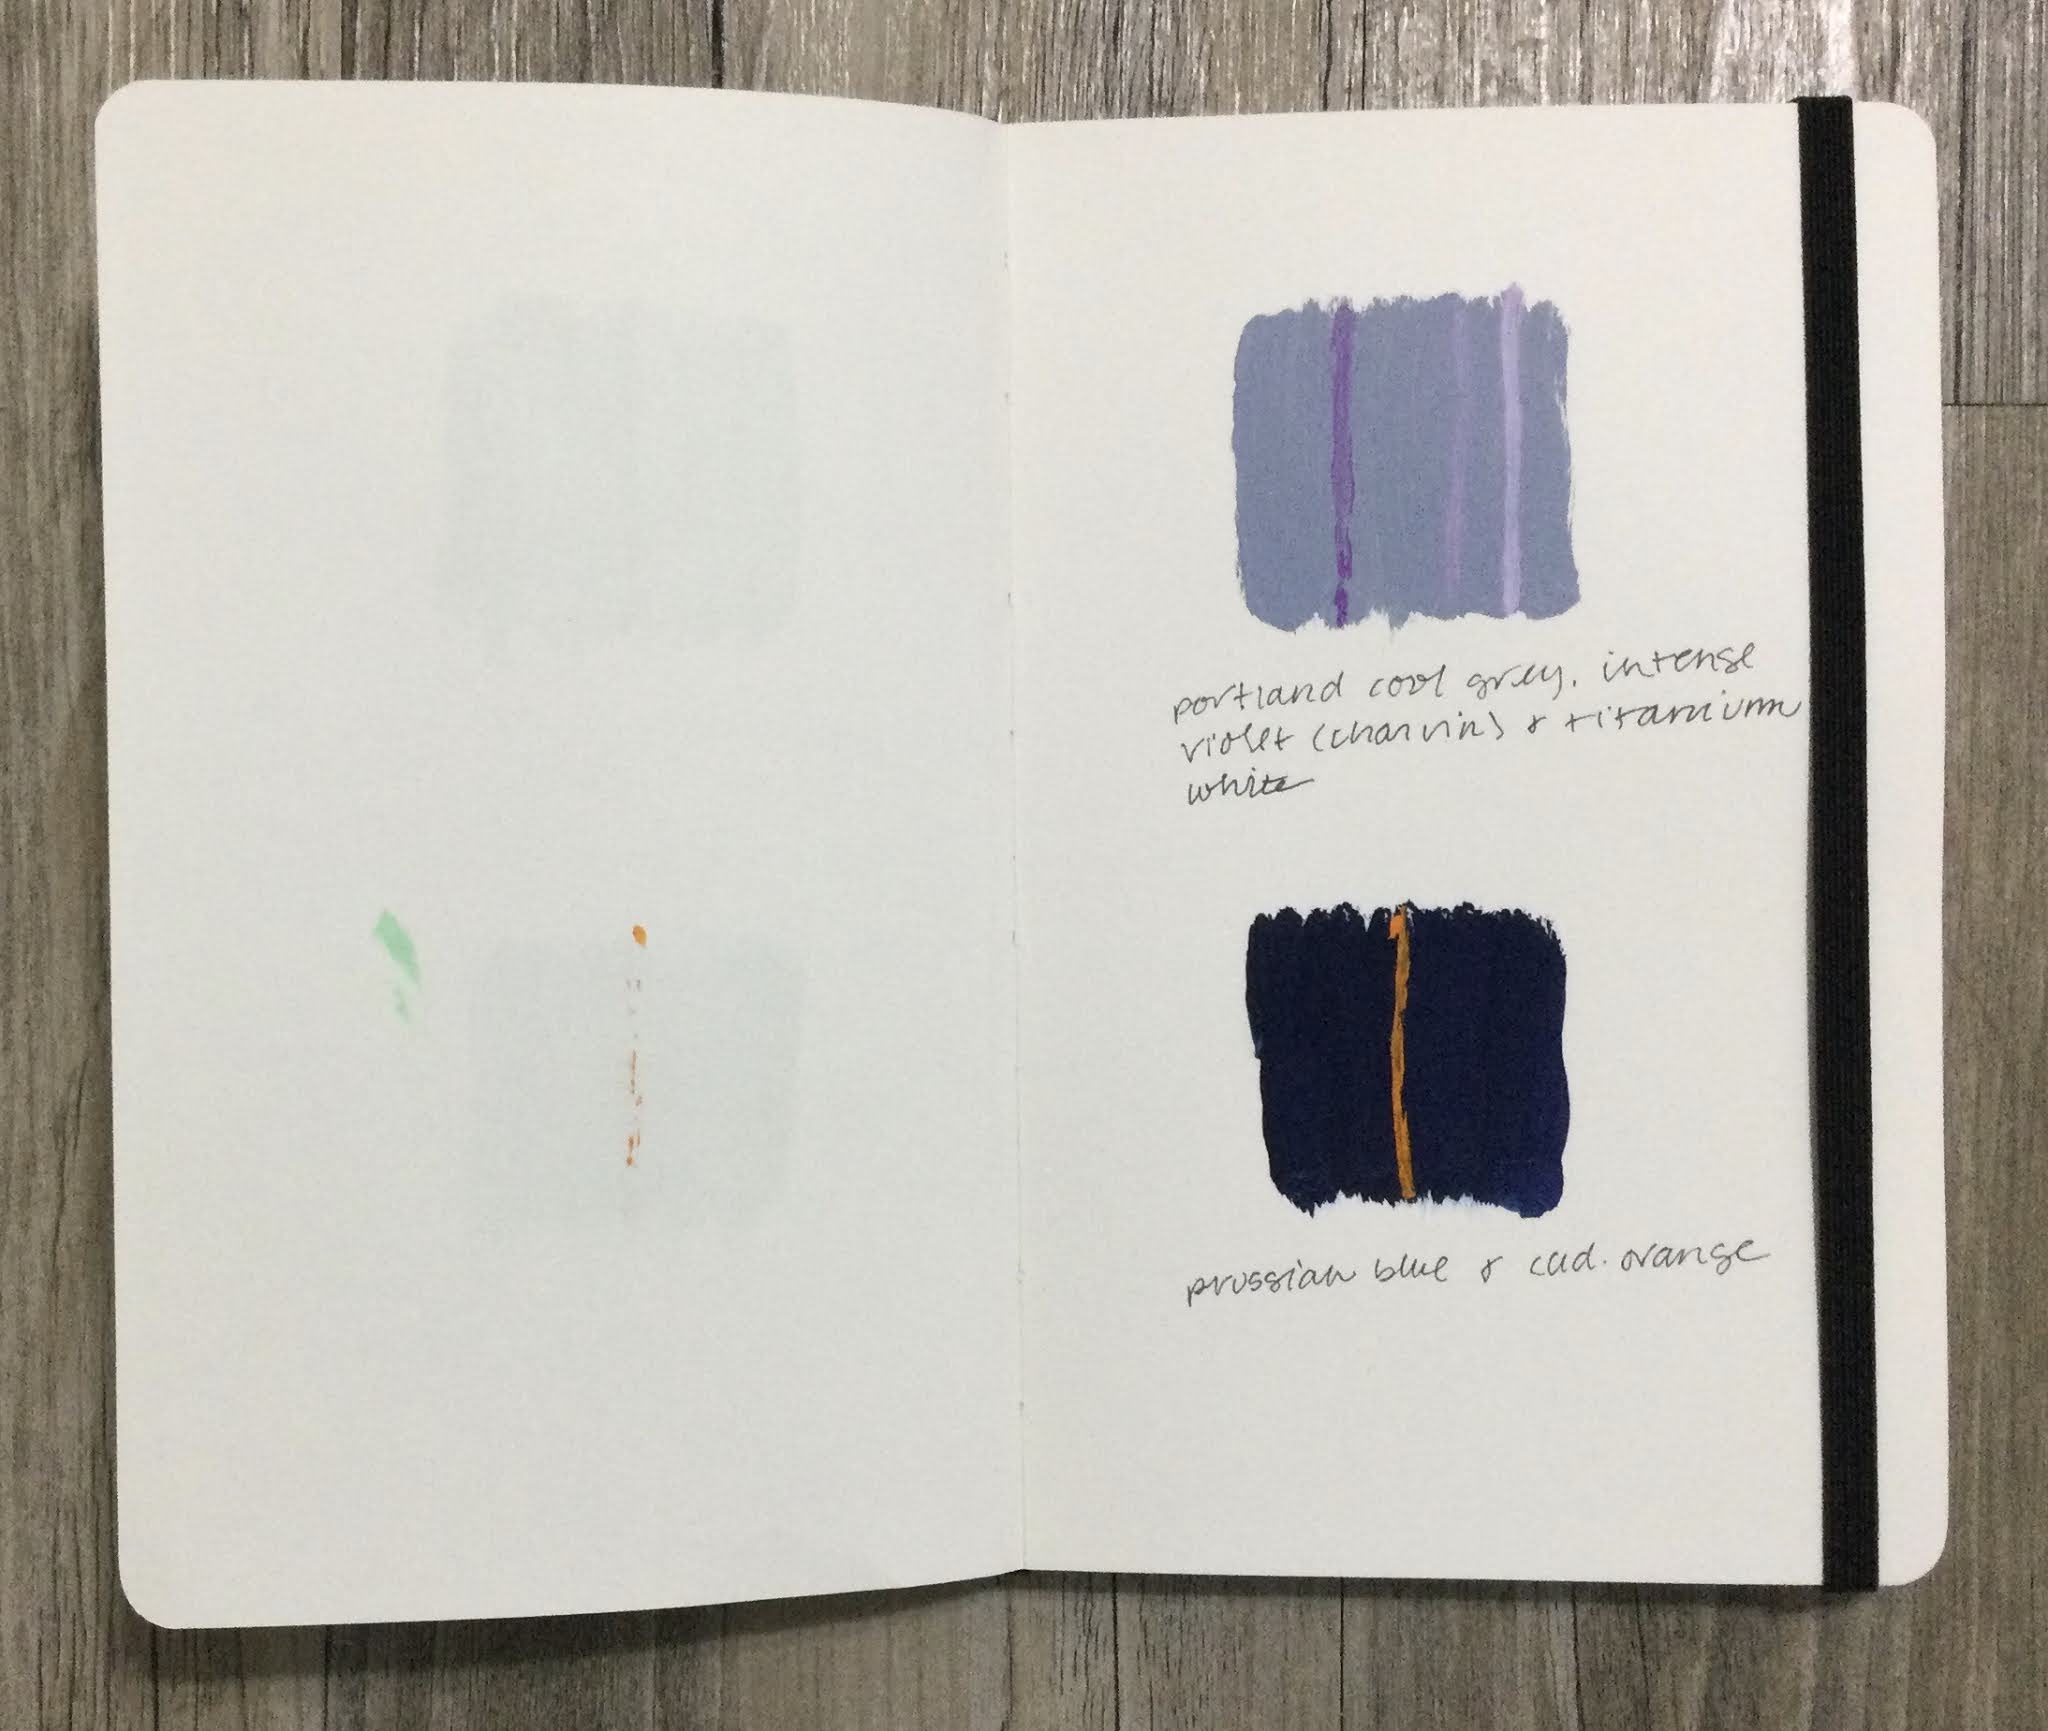 portland cool grey, intense
violet (charvin) & titanium
white
prussian blue & cad. orange